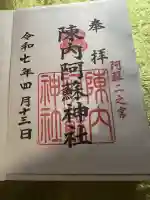 奉拝
阿蘇二之宮
陳内阿蘇神社
陳内
神社
令和七年四月十三日